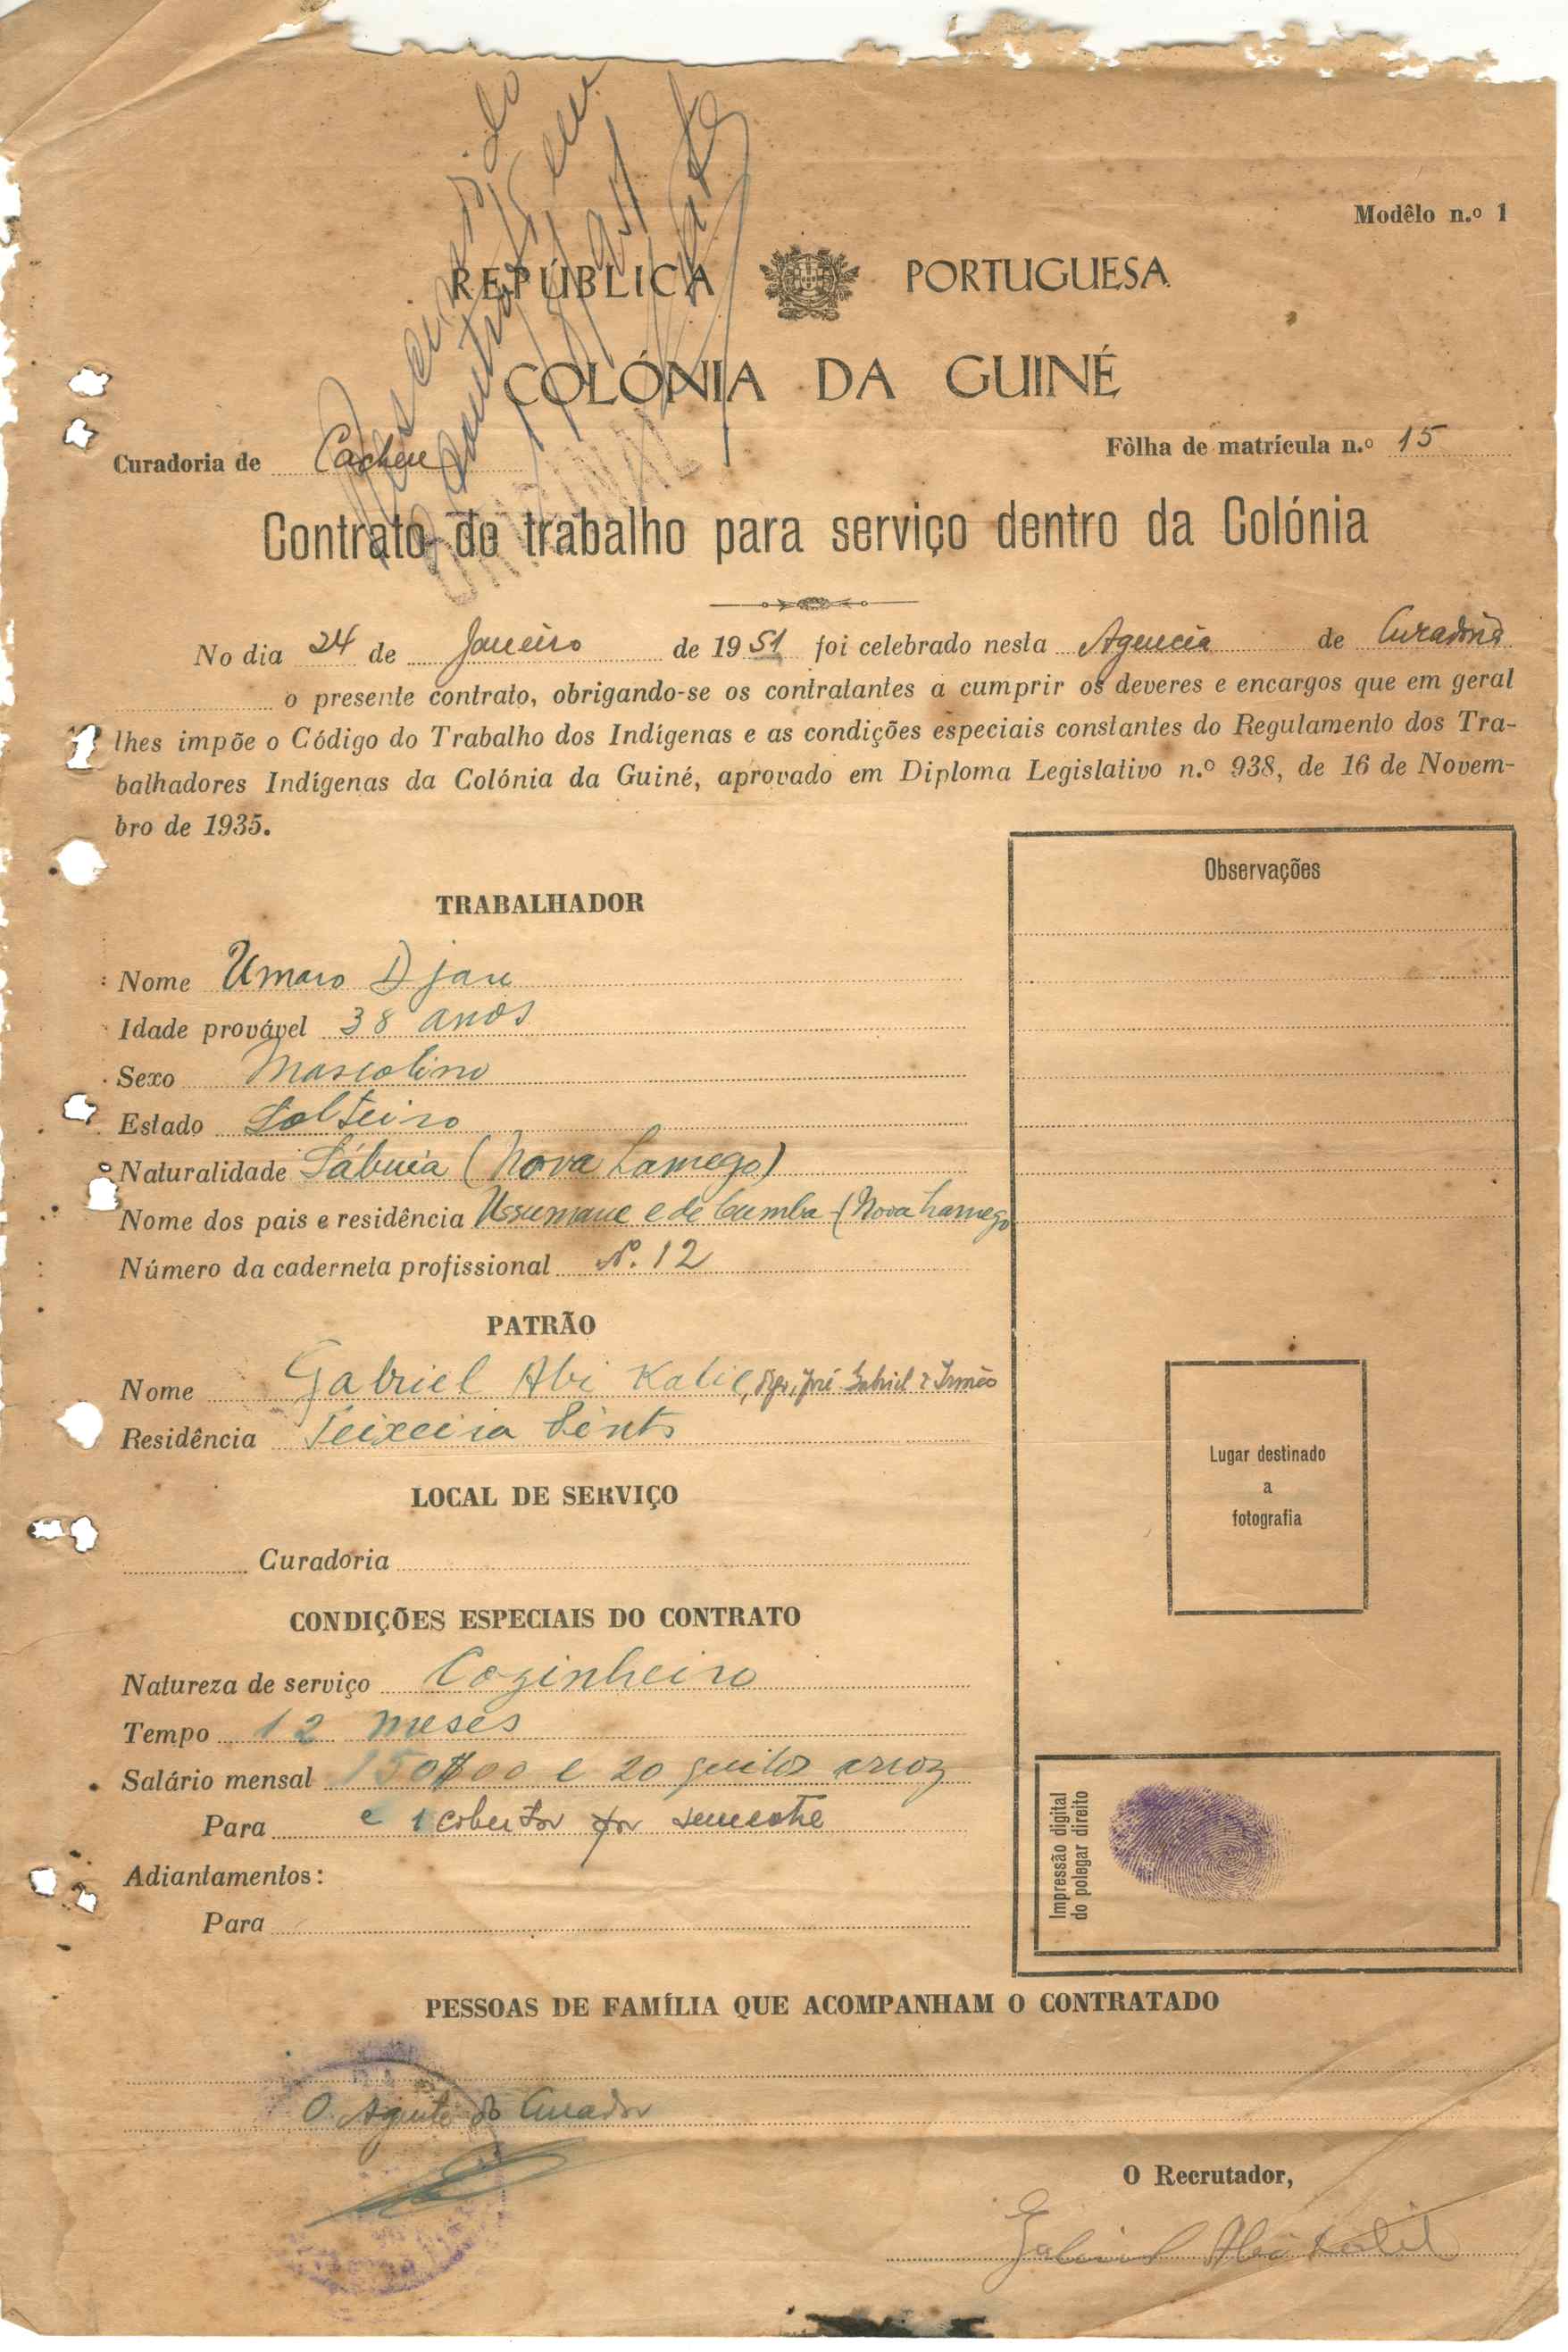 Modêlo n.º 1
REPÚBLICA PORTUGUESA
COLÓNIA DA GUINÉ
Curadoria de Cacheu
Fôlha de matrícula n.º 15
ORIGINAL
Contrato de trabalho para serviço dentro da Colónia
No dia 24 de Janeiro de 1951 foi celebrado nesta Agencia de Curadoria
o presente contrato, obrigando-se os contratantes a cumprir os deveres e encargos que em geral
lhes impõe o Código do Trabalho dos Indígenas e as condições especiais constantes do Regulamento dos Tra-
balhadores Indígenas da Colónia da Guiné, aprovado em Diploma Legislativo n.º 938, de 16 de Novem-
bro de 1935.
Observações
TRABALHADOR
Nome Umaro Djau
Idade provável 38 anos
Sexo Mascolino
Estado Solteiro
Naturalidade (Nova Lamego)
Nome dos pais e residência Ussumane e de Cumba (Nova Lamego
Número da caderneta profissional Nº. 12
PATRÃO
Nome Gabriel Abi Kalil, José Gabriel & Irmão
Residência Teixeira Pinto
Lugar destinado
a
fotografia
LOCAL DE SERVIÇO
Curadoria
CONDIÇÕES ESPECIAIS DO CONTRATO
Natureza de serviço Cozinheiro
Tempo 12 meses
Salário mensal 150$00 e 20 quilos arroz
Para e 1 cobertor por semestre
Adiantamentos:
Para
Impressão digital
do polegar direito
PESSOAS DE FAMÍLIA QUE ACOMPANHAM O CONTRATADO
O Agente do Curador
O Recrutador,
Gabriel Abi Kalil